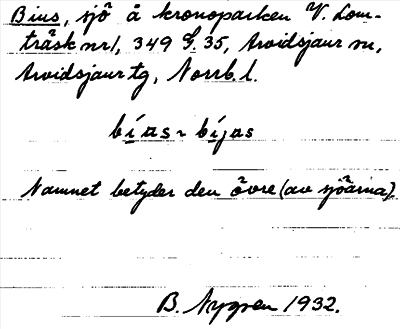 Bius, sjö å kronoparken V. Lom-
träsk nr 1, 349 G. 35, Arvidsjaur sn,
Arvidsjaur tg, Norrb. l.
bías ~ bíjas
Namnet betyder den övre (av sjöarna)
B. Nygren 1932.